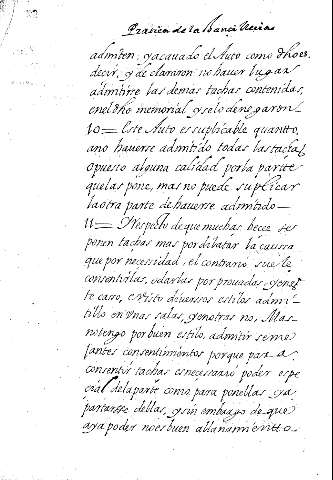 Practica de la Chanci Vecina
admiten: yacavado el Auto como dho es.
decir, y declararon no haver lugar
admitirse las demas tachas contenidas,
en el dho memorial, y se lo denegaron
10 = Este Auto es suplicable quantto,
ano haverse admitido todas las tachas
Opuesto alguna calidad por la partte
que las pone, mas no puede suplicar
la otra parte de haverse admitido —
11 = Respecto de que muchas beces se
ponen tachas mas por dilatar la caussa
que por necesidad, el contrario suele
consentirlas, o darlas por provadas y en es
te caso, e visto diversos estilos admi
tillo en Unas salas, y en otras no, Mas
no tengo por buen estilo, admitir seme
jantes consentimientos porque para
consentir tachas es necessario poder espe
cial de la parte como para ponellas y a
partarse dellas, y sin embargo de que
aya poder no es buen allanamientto